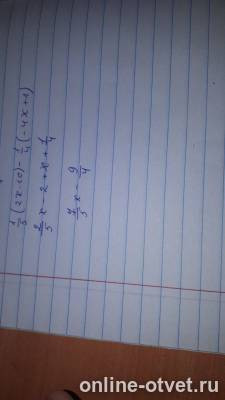 1/5 (2x-10) - 1/4 (-4x+1)
2/5 x - 2 + x + 1/4
7/5 x - 9/4
online-otvet.ru